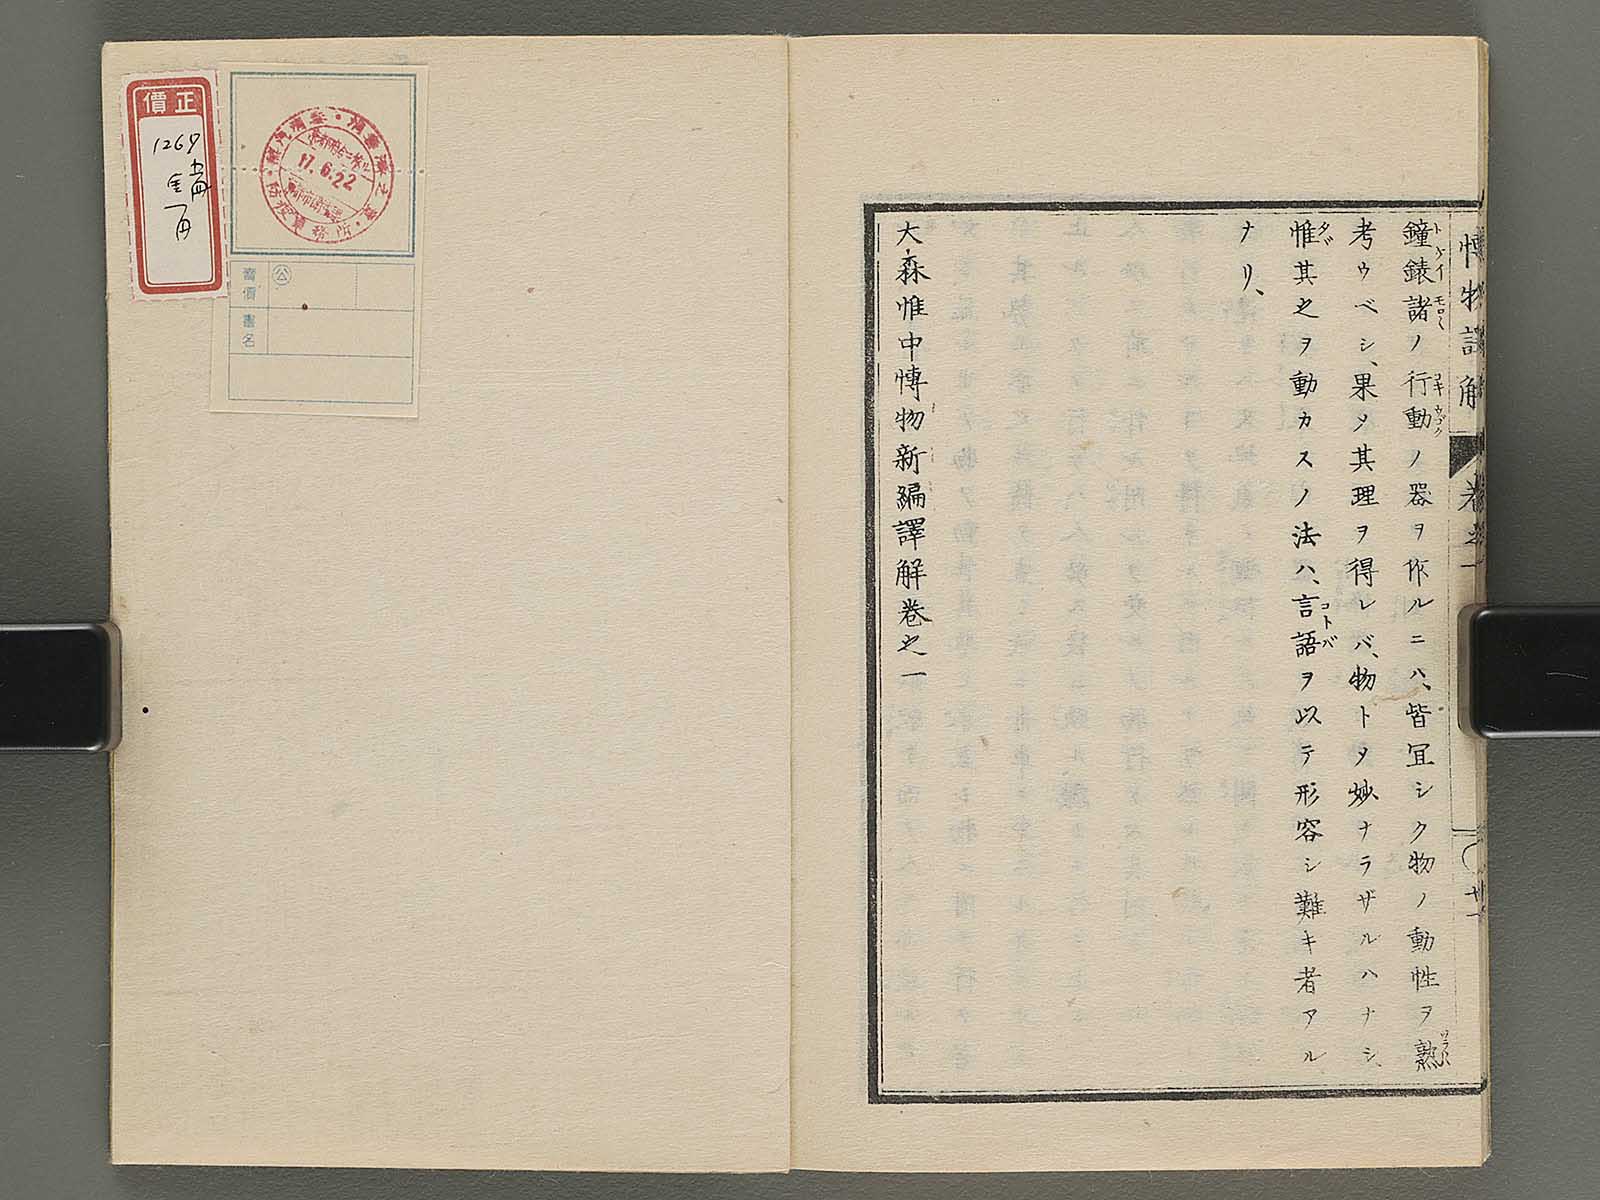 鐘錶諸ノ行動ノ器ヲ作ルニハ、皆宜シク物ノ動性ヲ熟
考ウベシ、果タ其理ヲ得レバ、物トタ妙ナラザルハナシ、
惟其之ヲ動カスノ法ハ、言語ヲ以テ形容シ難キ者アル
ナリ、
大森惟中博物新編譯解卷之一
博物譯解
卷之一
廿一
正價
1269
17.6.22
公
賣價
書名